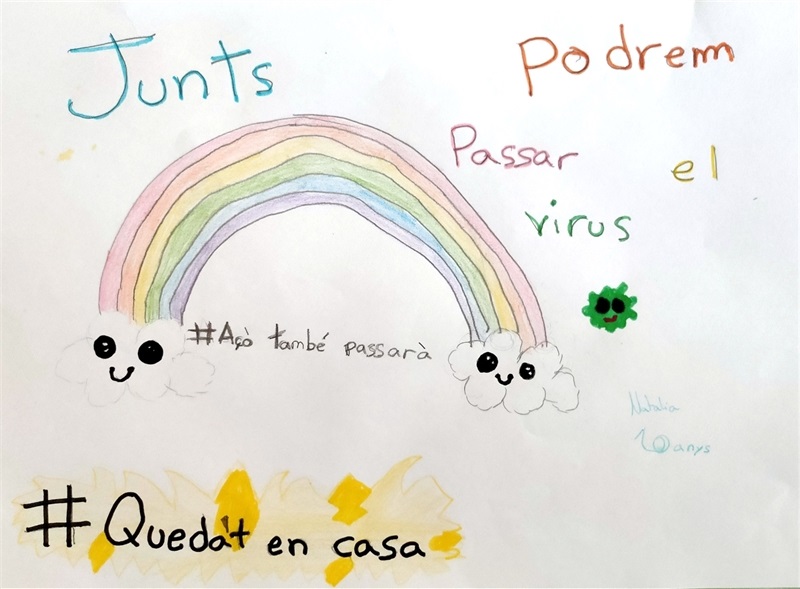 Junts
Podrem
Passar el
virus
#Açò també passarà
Natalia
10 anys
# Queda't en casa